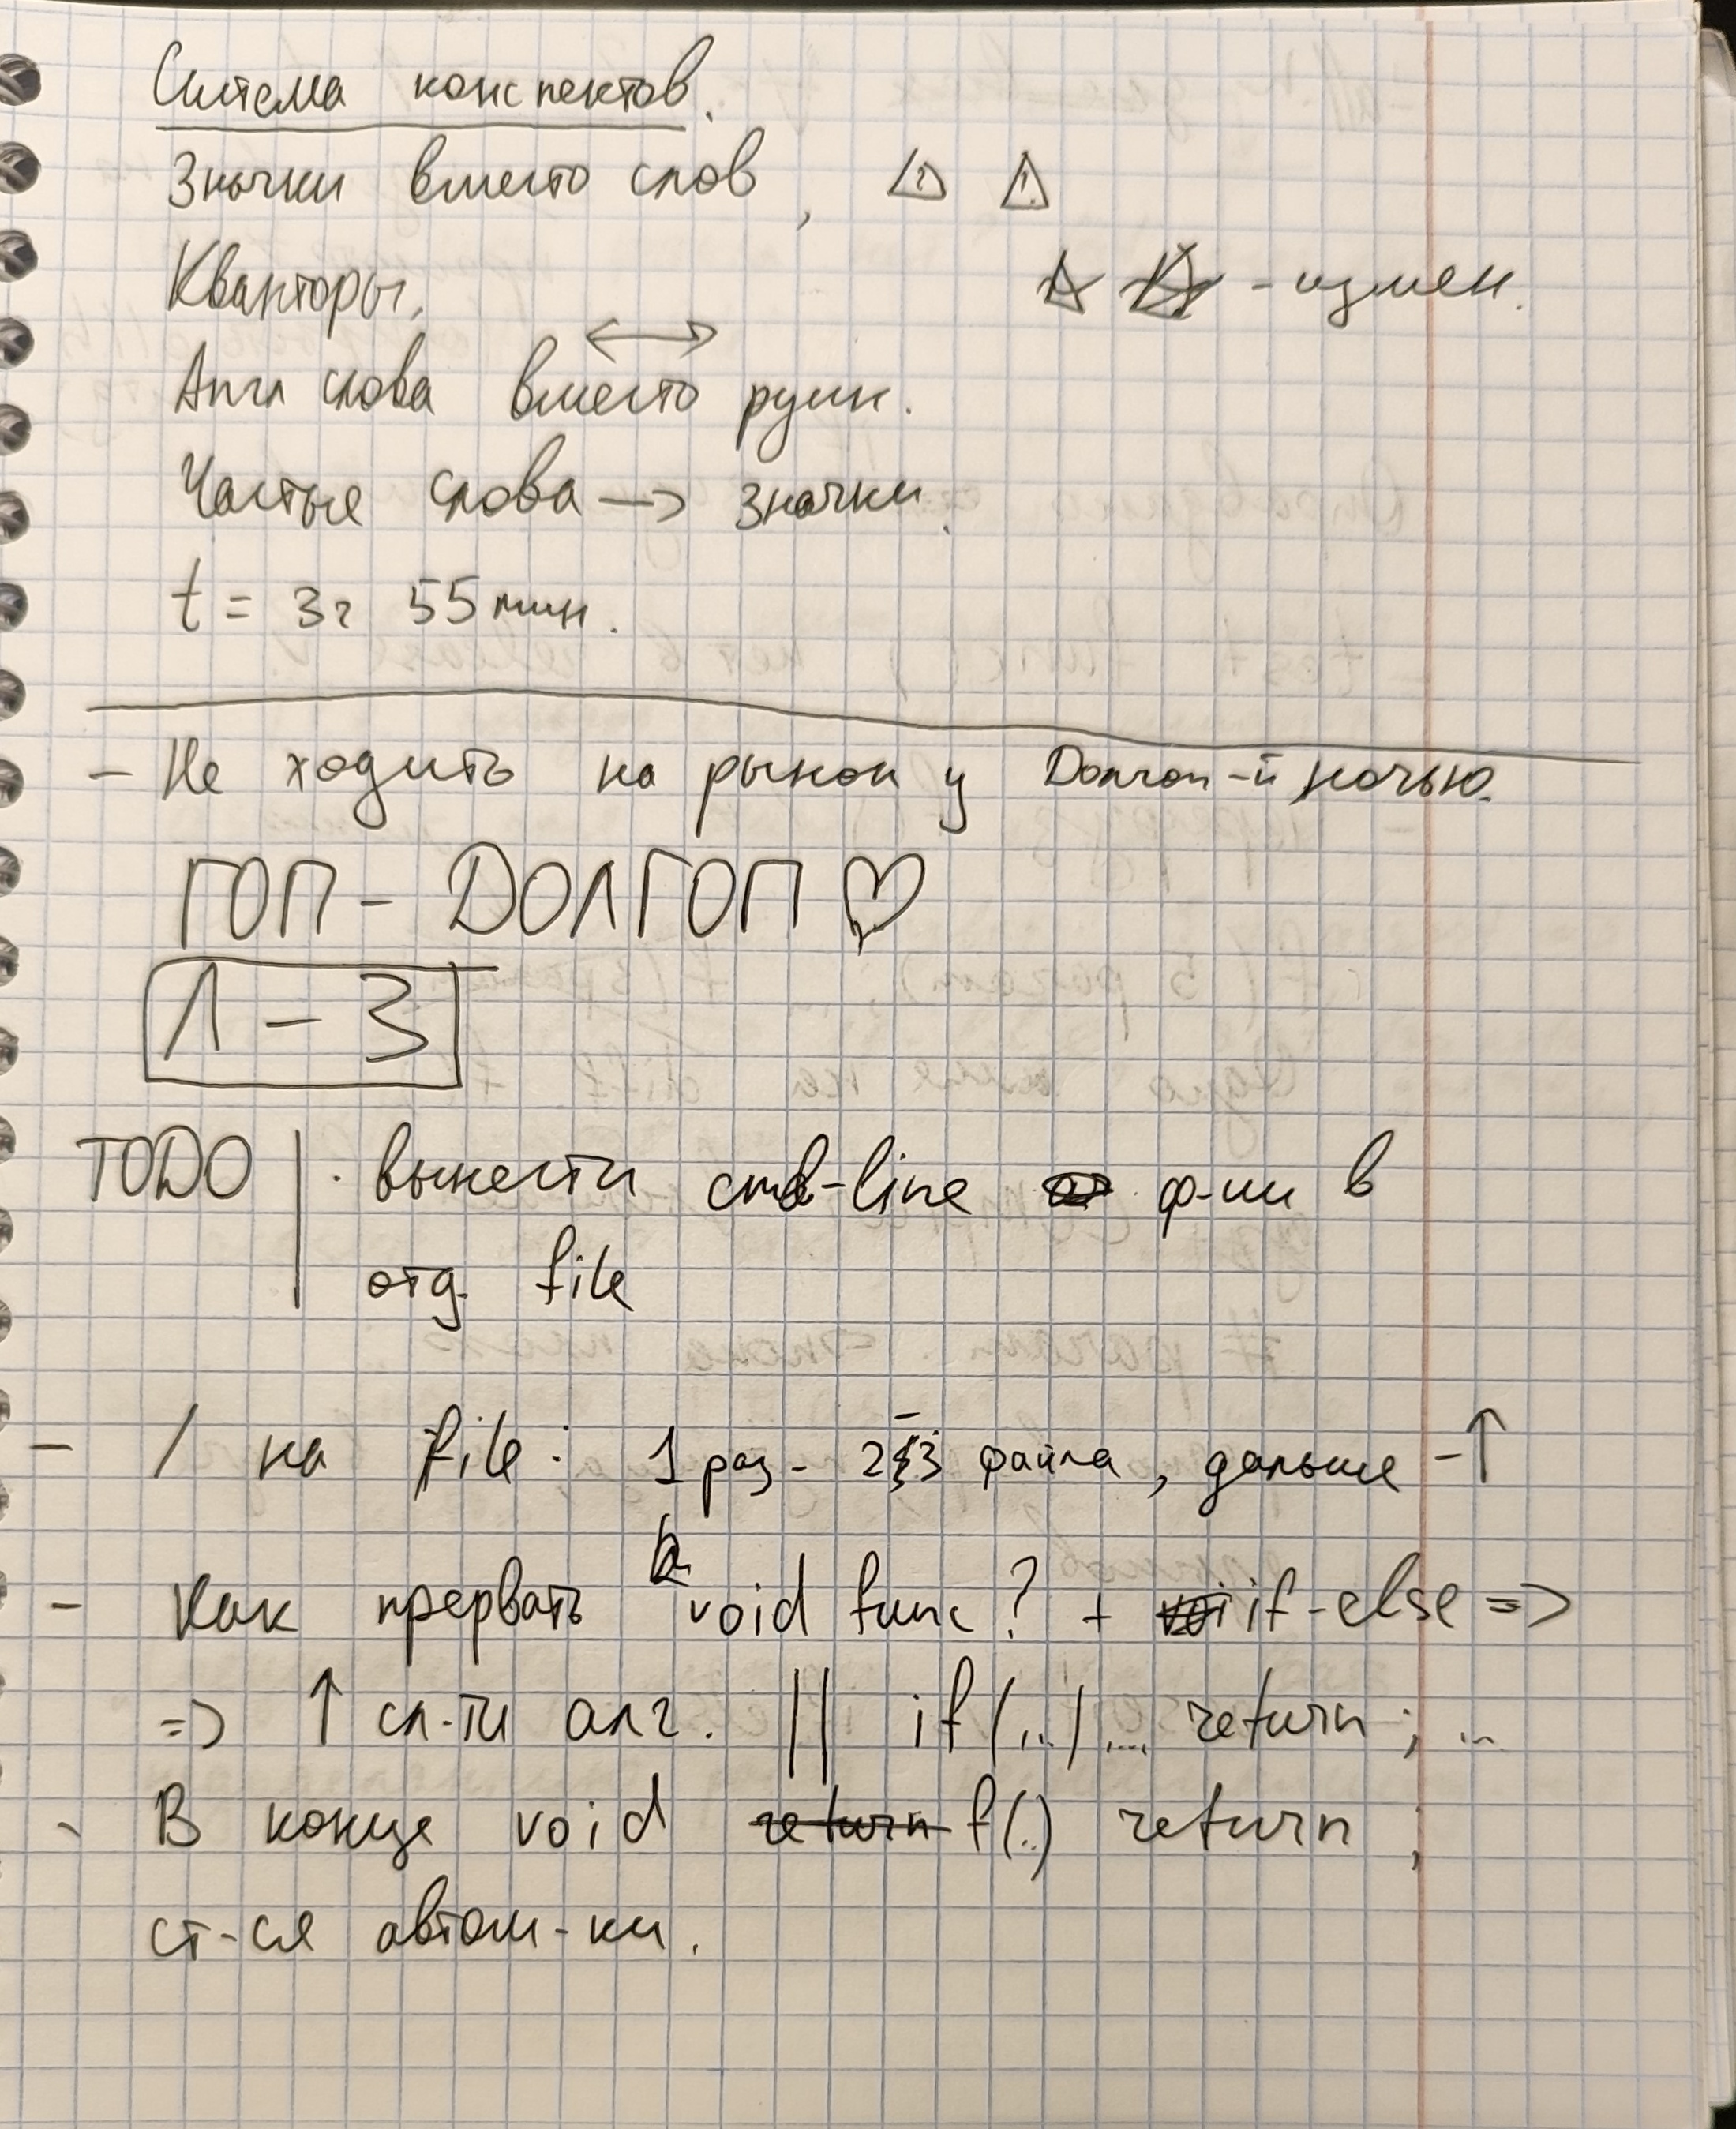 Система конспектов.
Значки вместо слов, ⚠ ⚠
Кванторы, - измен.
Англ слова вместо русск.
↔
Частые слова → значки.
t = 3ч 55 мин.
- Не ходить на рынок у Долгоп-й ночью.
ГОП - ДОЛГОП ♡
Л - 3
TODO | · вынести cmd-line ф-ии в
отд. file
- / на file: 1 раз - 2-3 файла, дальше - ↑
- Как прервать void func? + if-else =>
=> ↑ сл-ти алг. || if (..) .... return; ...
- В конце void return f(..) return ;
ст-ся автом-ки.